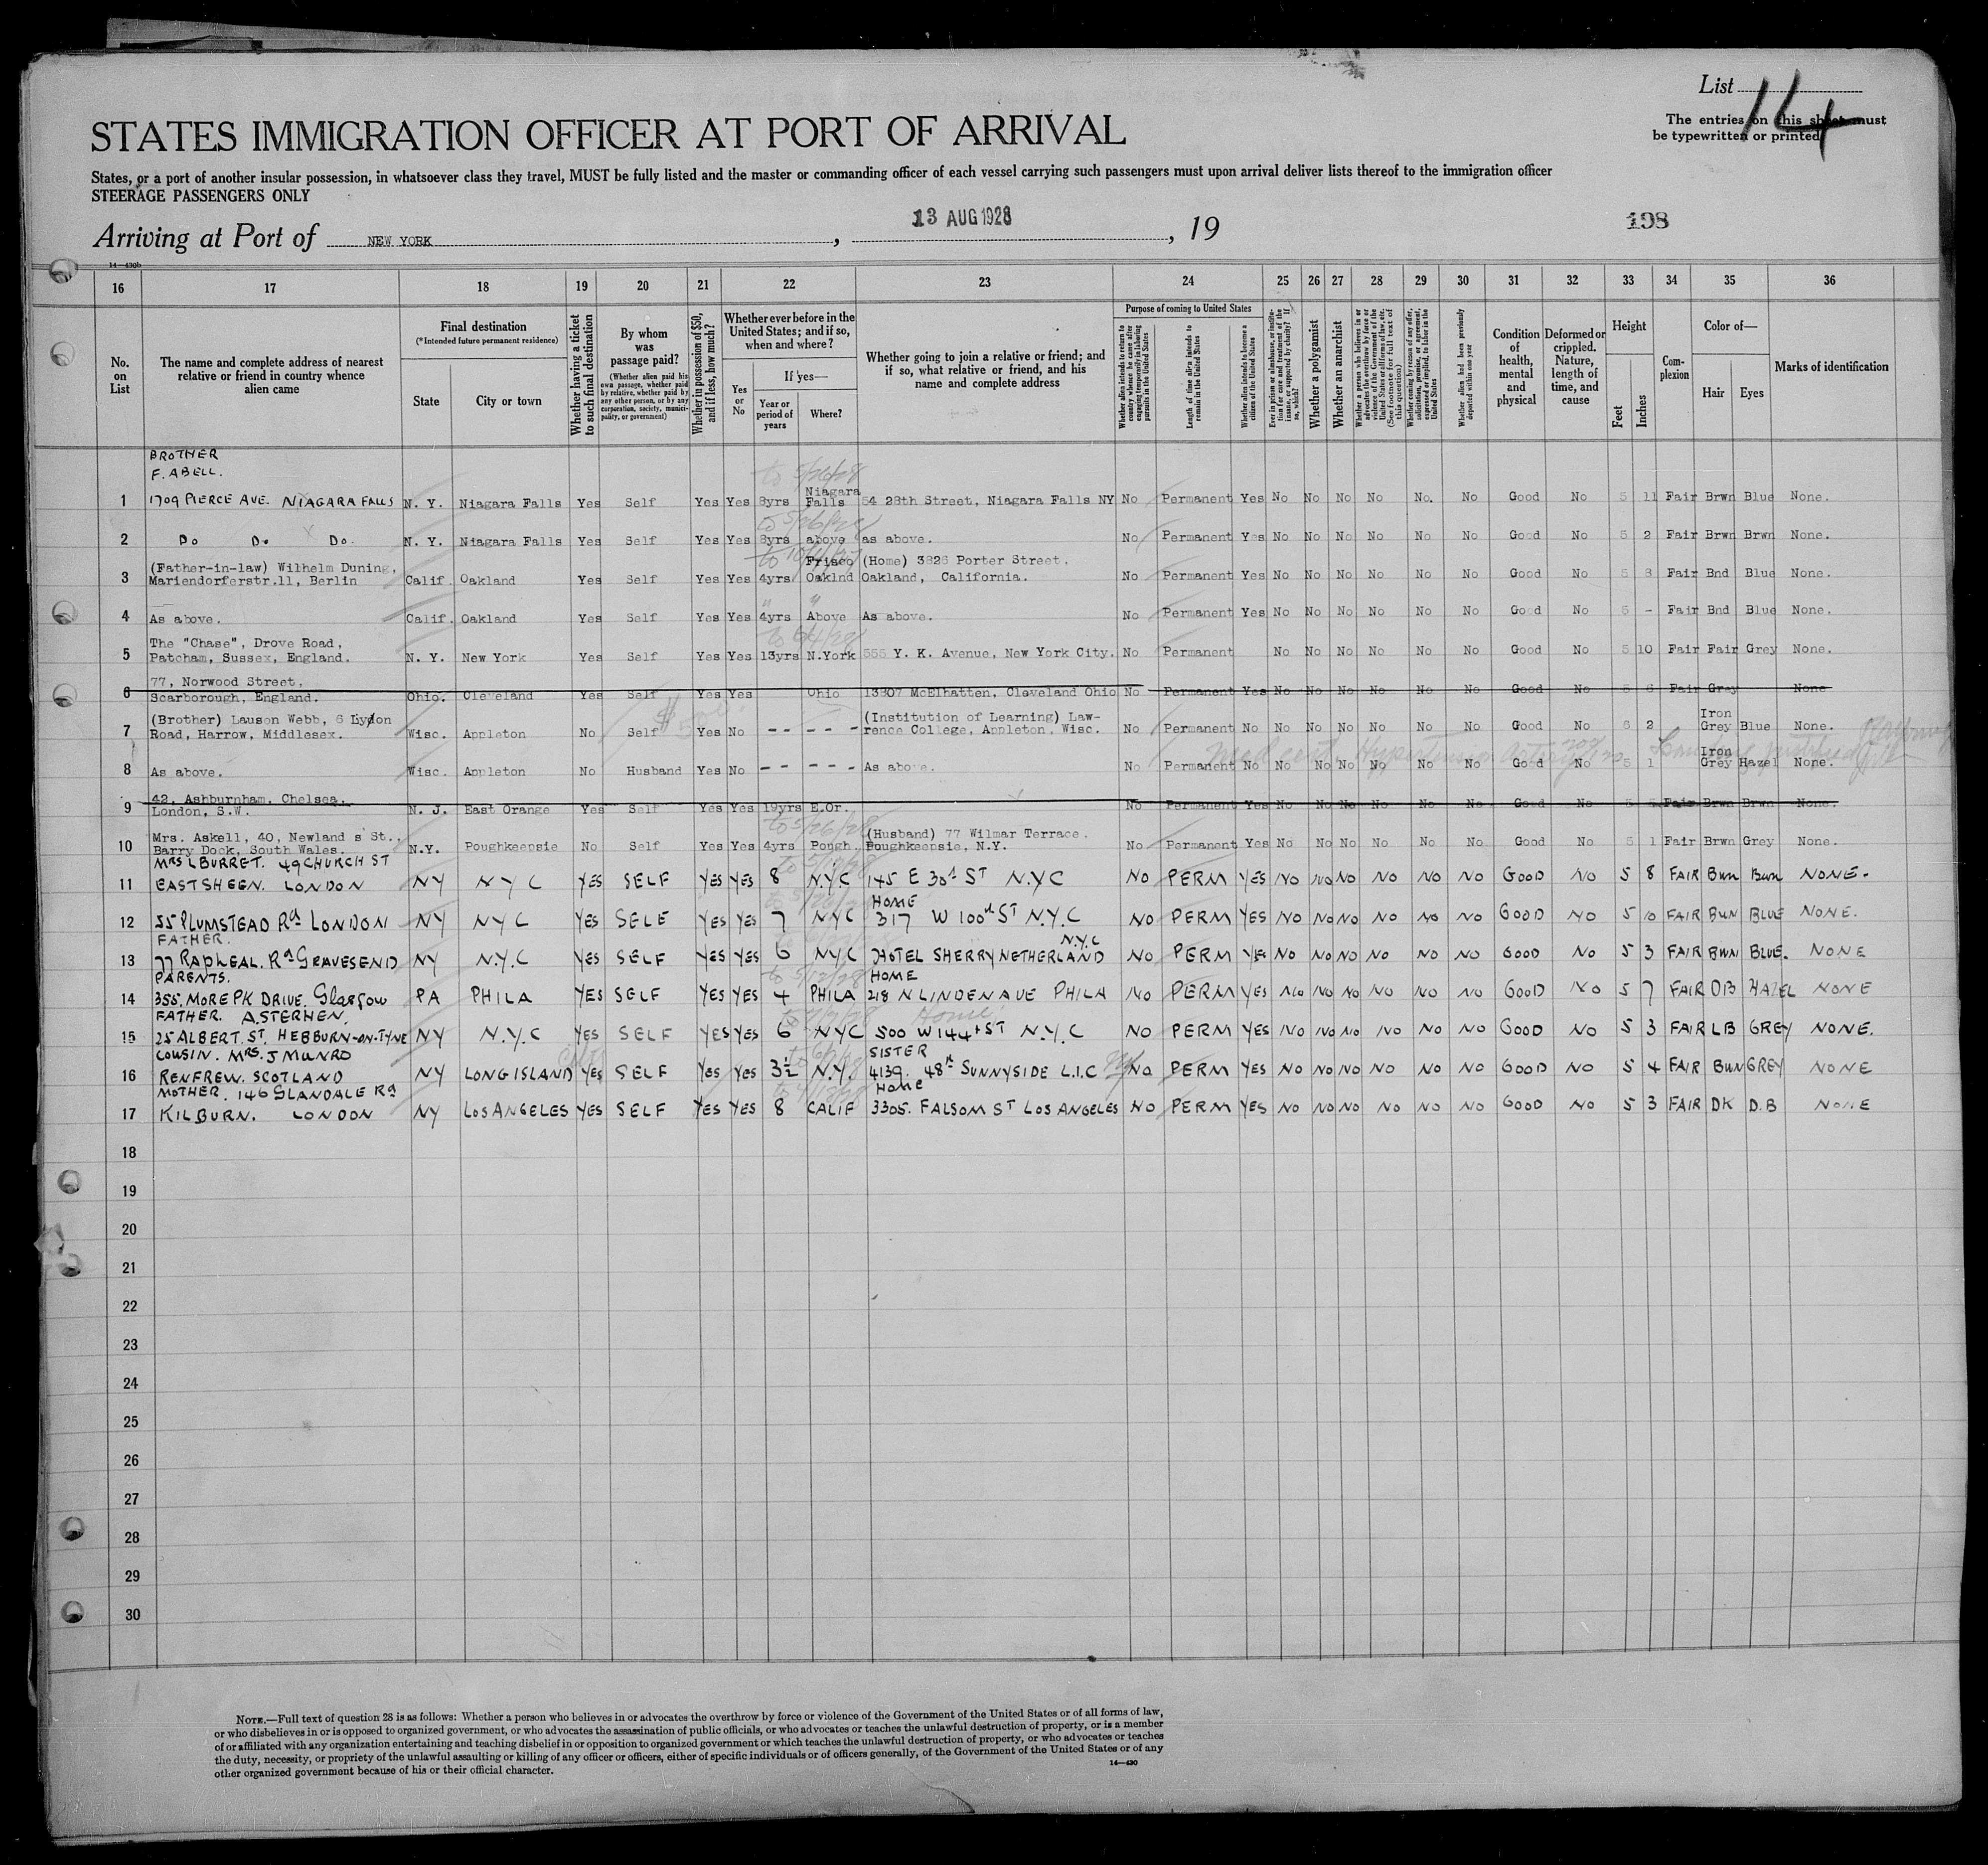 List 14
The entries on this sheet must
be typewritten or printed
STATES IMMIGRATION OFFICER AT PORT OF ARRIVAL
States, or a port of another insular possession, in whatsoever class they travel, MUST be fully listed and the master or commanding officer of each vessel carrying such passengers must upon arrival deliver lists thereof to the immigration officer
STEERAGE PASSENGERS ONLY
Arriving at Port of NEW YORK , 13 AUG 1928 , 19
198
14—430b
16 17 18 19 20 21 22 23 24 25 26 27 28 29 30 31 32 33 34 35 36
No. on List
The name and complete address of nearest relative or friend in country whence alien came
Final destination
(*Intended future permanent residence)
State
City or town
Whether having a ticket to such final destination
By whom was passage paid?
(Whether alien paid his own passage, whether paid by relative, whether paid by any other person, or by any corporation, society, municipality, or government)
Whether in possession of $50, and if less, how much?
Whether ever before in the United States; and if so, when and where?
Yes or No
If yes—
Year or period of years
Where?
Whether going to join a relative or friend; and if so, what relative or friend, and his name and complete address
Purpose of coming to United States
Whether alien intends to return to country whence he came after engaging temporarily in laboring pursuits in the United States
Length of time alien intends to remain in the United States
Whether alien intends to become a citizen of the United States
Whether a polygamist
Whether an anarchist
Whether alien had been previously deported within one year
Condition of health, mental and physical
Deformed or crippled. Nature, length of time, and cause
Height
Feet
Inches
Complexion
Color of—
Hair
Eyes
Marks of identification
BROTHER
F. ABELL.
1 1709 PIERCE AVE. NIAGARA FALLS N. Y. Niagara Falls Yes Self Yes Yes 8yrs Niagara Falls 54 28th Street, Niagara Falls NY No Permanent Yes No No No No No. No Good No 5 11 Fair Brwn Blue None.
to 5/26/28
2 Do Do Do. N. Y. Niagara Falls Yes Self Yes Yes 8yrs above as above. No Permanent Yes No No No No No No Good No 5 2 Fair Brwn Brwn None.
(Father-in-law) Wilhelm Duning, Frisco (Home) 3826 Porter Street,
3 Mariendorferstr.11, Berlin Calif. Oakland Yes Self Yes Yes 4yrs Oaklnd Oakland, California. No Permanent Yes No No No No No No Good No 5 8 Fair Bnd Blue None.
4 As above. Calif. Oakland Yes Self Yes Yes 4yrs Above As above. No Permanent Yes No No No No No No Good No 5 - Fair Bnd Blue None.
The "Chase", Drove Road,
5 Patcham, Sussex, England. N. Y. New York Yes Self Yes Yes 13yrs N.York 555 Y. K. Avenue, New York City. No Permanent No No No No No No Good No 5 10 Fair Fair Grey None.
77, Norwood Street,
6 Scarborough, England. Ohio. Cleveland Yes Self Yes Yes Ohio 13807 McElhatten, Cleveland Ohio No Permanent Yes No No No No No No Good No 5 6 Fair Grey None
(Brother) Lauson Webb, 6 Lydon (Institution of Learning) Law- Iron
7 Road, Harrow, Middlesex. Wisc. Appleton No Self Yes No - - - - - rence College, Appleton, Wisc. No Permanent No No No No No No No Good No 6 2 Grey Blue None.
Iron
8 As above. Wisc. Appleton No Husband Yes No - - - - - - As above. No Permanent No No No No No No No Good No 5 1 Grey Hazel None.
42, Ashburnham, Chelsea,
9 London, S.W. N. J. East Orange Yes Self Yes Yes 19yrs E.Or. No Permanent Yes No No No No No No Good No 5 Fair Brwn Brwn None.
to 5/26/28
Mrs. Askell, 40, Newland s St., (Husband) 77 Wilmar Terrace,
10 Barry Dock, South Wales. N.Y. Poughkeepsie No Self Yes Yes 4yrs Pough. Poughkeepsie, N.Y. No Permanent Yes No No No No No No Good No 5 1 Fair Brwn Grey None.
MRS L BURRET. 49 CHURCH ST
11 EAST SHEEN. LONDON NY N Y C YES SELF YES YES 8 N.Y.C 145 E 30th ST N.Y.C NO PERM YES NO NO NO NO NO NO GOOD NO 5 8 FAIR BWN BWN NONE.
HOME
12 55 PLUMSTEAD Rd LONDON NY NYC YES SELF YES YES 7 NYC 317 W 100th ST N.Y.C NO PERM YES NO NO NO NO NO NO GOOD NO 5 10 FAIR BWN BLUE NONE.
FATHER. N.Y.C
13 77 RAPHEAL. Rd GRAVESEND NY N.Y.C YES SELF YES YES 6 NYC HOTEL SHERRY NETHERLAND NO PERM YES NO NO NO NO NO NO GOOD NO 5 3 FAIR BWN BLUE. NONE
PARENTS. HOME
14 355. MOREPK DRIVE. Glasgow PA PHILA YES SELF YES YES 4 PHILA 218 N LINDEN AVE PHILA NO PERM YES NO NO NO NO NO NO GOOD NO 5 7 FAIR DB HAZEL NONE
FATHER. A. STERHEN. Home
15 25 ALBERT. ST. HEBBURN-ON-TYNE NY N.Y.C YES SELF YES YES 6 NYC 500 W 144th ST N.Y.C NO PERM YES NO NO NO NO NO NO GOOD NO 5 3 FAIR LB GREY NONE.
COUSIN. MRS. J MUNRO SISTER
16 RENFREW. SCOTLAND NY LONG ISLAND YES SELF YES YES 3½ N.Y. 4139. 48th SUNNYSIDE L.I.C NO PERM YES NO NO NO NO NO NO GOOD NO 5 4 FAIR BWN GREY NONE
MOTHER. 146 GLANDALE Rd HOME
17 KILBURN. LONDON NY LOS ANGELES YES SELF YES YES 8 CALIF 3305. FALSOM ST LOS ANGELES NO PERM YES NO NO NO NO NO NO GOOD NO 5 3 FAIR DK D.B NONE
18
19
20
21
22
23
24
25
26
27
28
29
30
NOTE.—Full text of question 28 is as follows: Whether a person who believes in or advocates the overthrow by force or violence of the Government of the United States or of all forms of law,
or who disbelieves in or is opposed to organized government, or who advocates the assassination of public officials, or who advocates or teaches the unlawful destruction of property, or is a member
of or affiliated with any organization entertaining and teaching disbelief in or opposition to organized government or which teaches the unlawful destruction of property, or who advocates or teaches
the duty, necessity, or propriety of the unlawful assaulting or killing of any officer or officers, either of specific individuals or of officers generally, of the Government of the United States or of any
other organized government because of his or their official character.
14—430